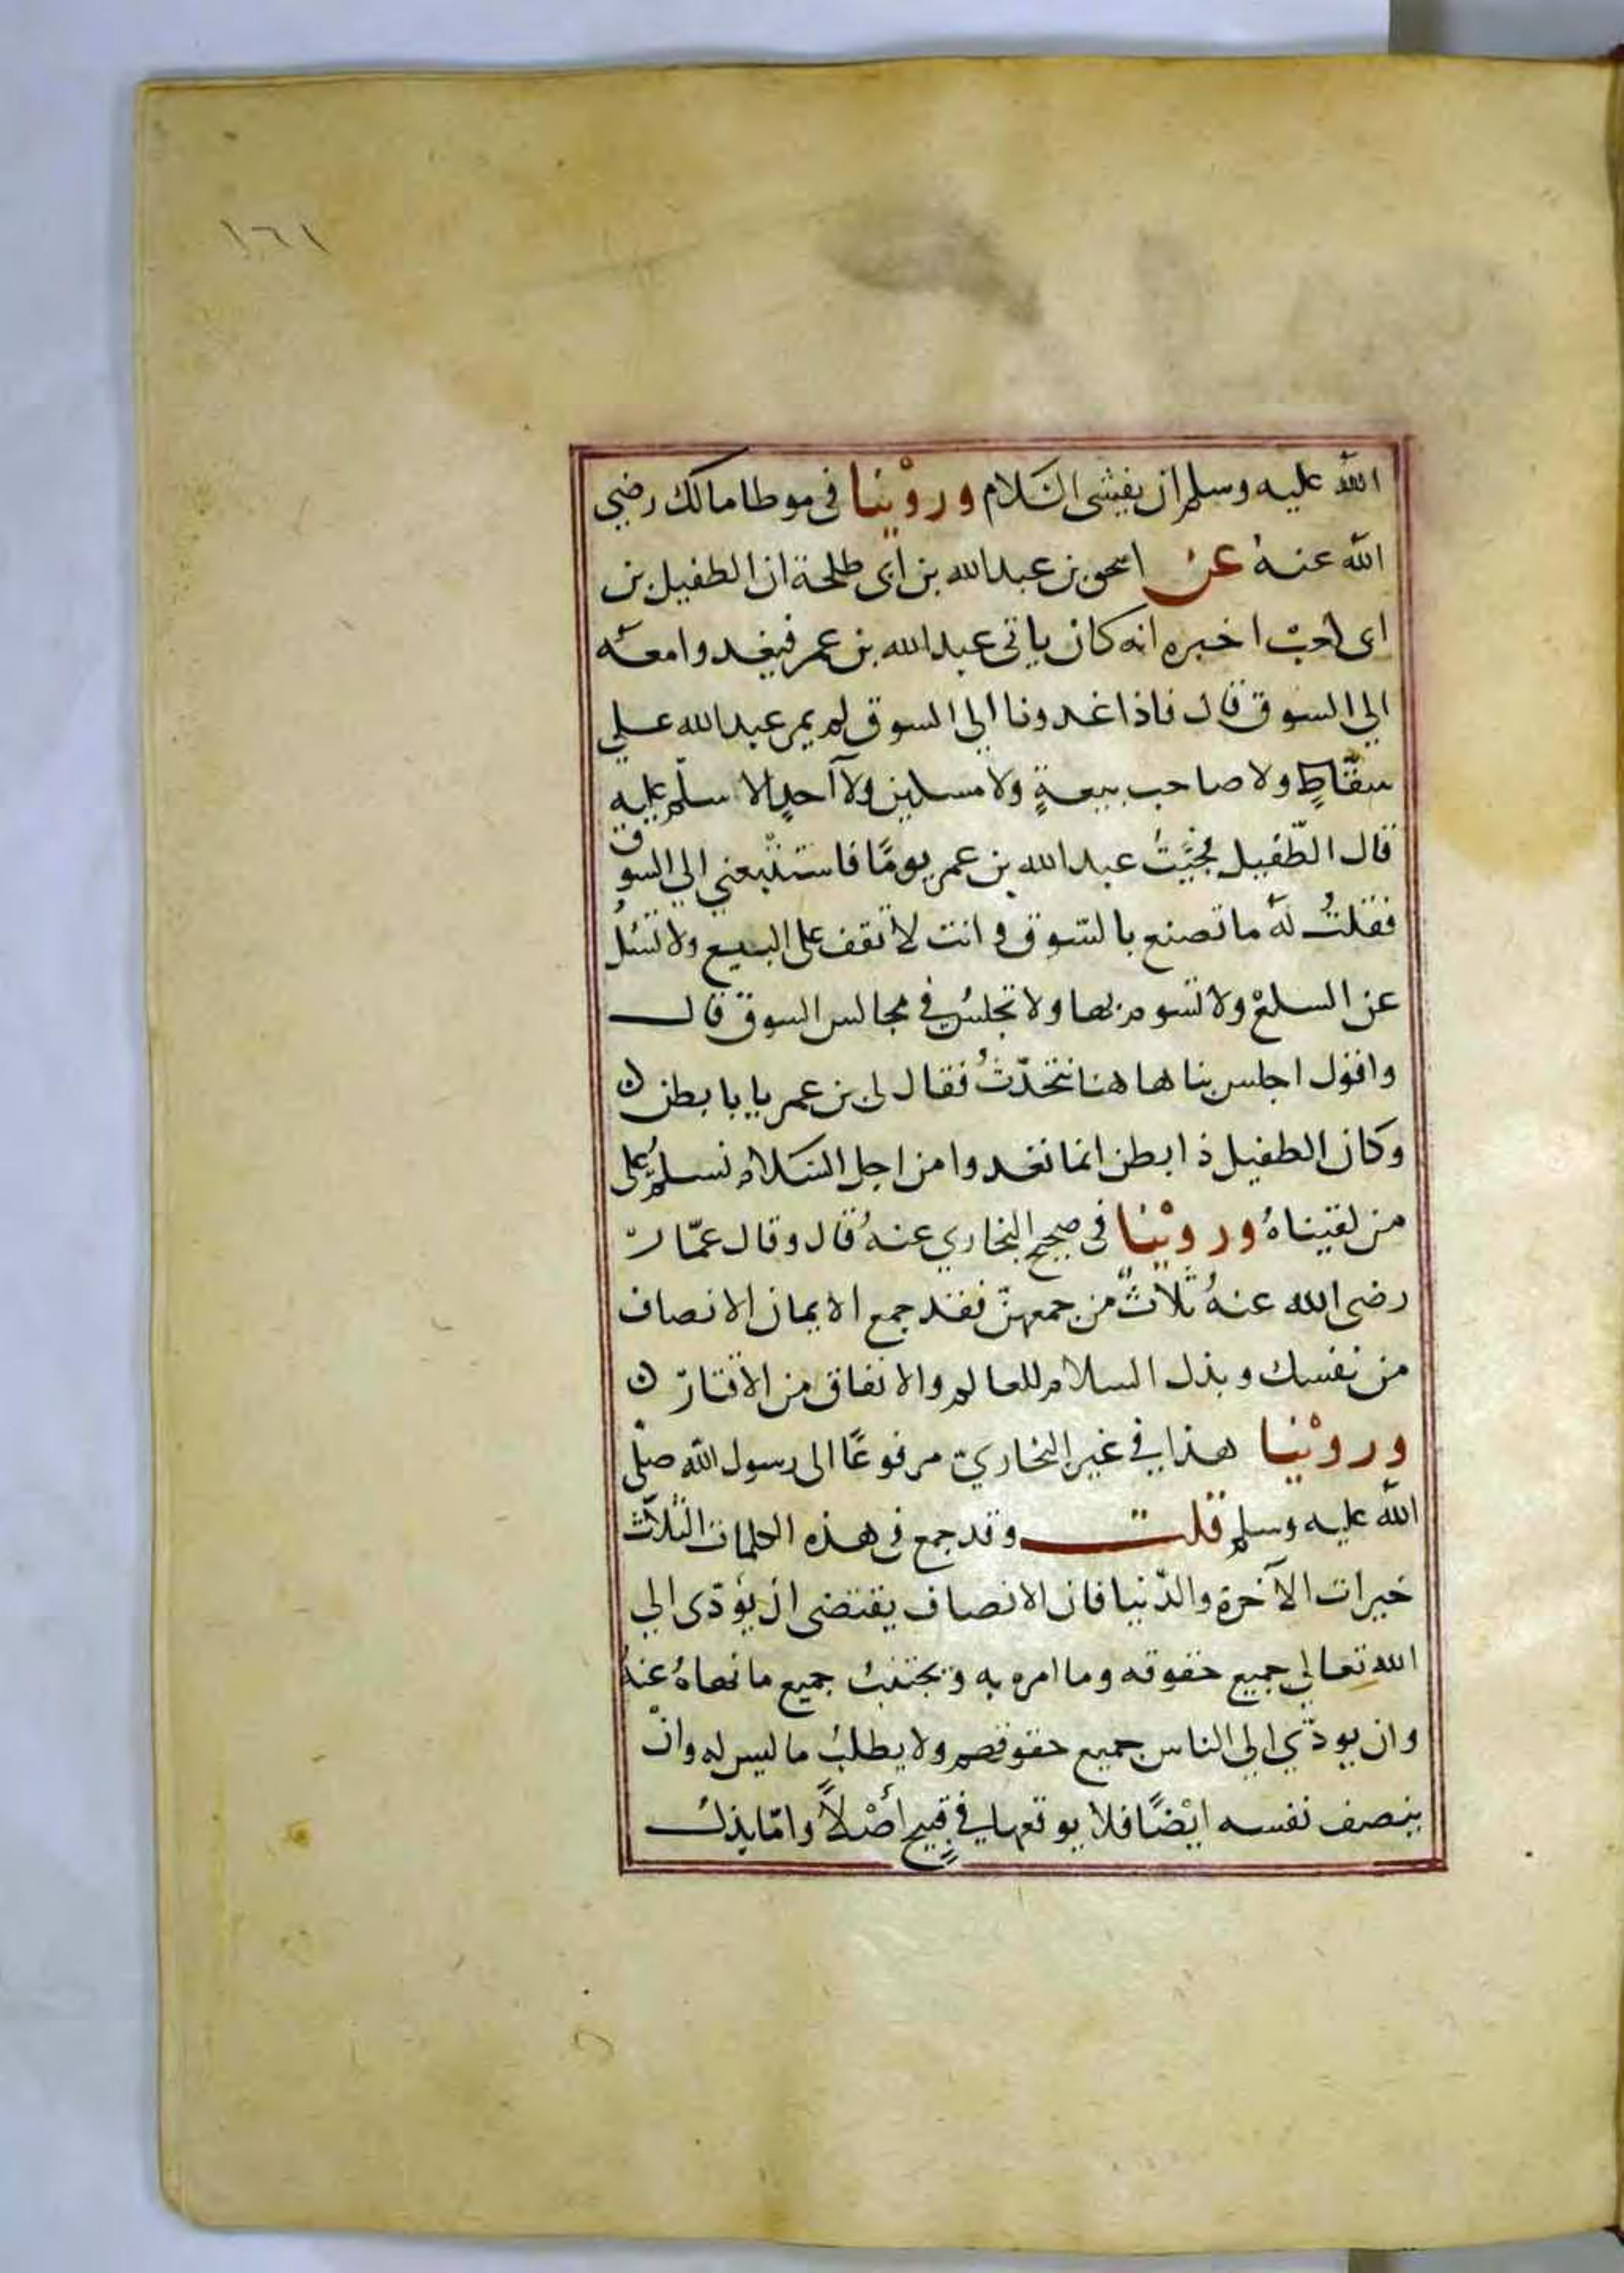 ١٦١
الله عليه وسلم ان يفشى السَّلام وروْينا فى موطا مالك رضي
الله عنهُ عن اسحق بن عبدالله بن ابى طلحة ان الطفيل بن
ابى كعب اخبره انه كان ياتى عبدالله بن عمر فيغدوا معه
الي السوق قال فاذا غدونا الي السوق لم يمر عبدالله علي
سقّاطٍ ولا صاحب بيعةٍ ولا مسكين ولا آحدٍ الا سلّم عليه
قال الطّفيل فجيَّتُ عبدالله بن عمر يومًا فاستتْبعني الي السوق
فقلتُ لهُ ما تصنع بالسّوق وانت لا تقف على البيع ولا تسئلُ
عن السلعْ ولا تسوم بها ولا تجلسُ في مجالس السوق قال
واقول اجلس بنا هاهنا نتحدّثُ فقال لى بن عمر يا با بطن ن
وكان الطفيل ذا بطن انما نغدوا من اجل السَّلام نسلمُ على
من لقيناهُ وروْينا فى صحيح البخاري عنهُ قال وقال عمّار
رضى الله عنهُ ثلاثٌ من جمعهنّ فقد جمع الايمان الانصاف
من نفسك وبذل السلام للعالم والانفاق من الاقتار ن
وروْينا هذا في غير البخاريّ مرفوعًا الى رسول الله صلّى
الله عليه وسلم قلت وقد جمع فى هذه الكلمات الثلاث
خيرات الآخرة والدّنيا فان الانصاف يقتضى ان يؤدّى الي
الله تعالي جميع حقوقه وما امره به ويجتنبُ جميع ما نهاهُ عنهُ
وان يودّي الي الناس جميع حقوقهم ولا يطلبُ ما ليس له وانْ
ينصف نفسه ايْضًا فلا يوقعها في قبيحٍ أصْلاً وامّا بذل